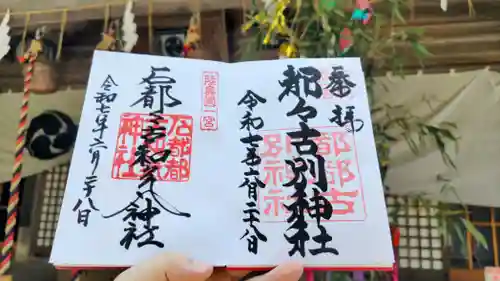 奉拝
都々古別神社
都都古
別神社
令和七年六月二十八日
陸奥國一宮
石都々古和気神社
石都都
神社
令和七年六月二十八日